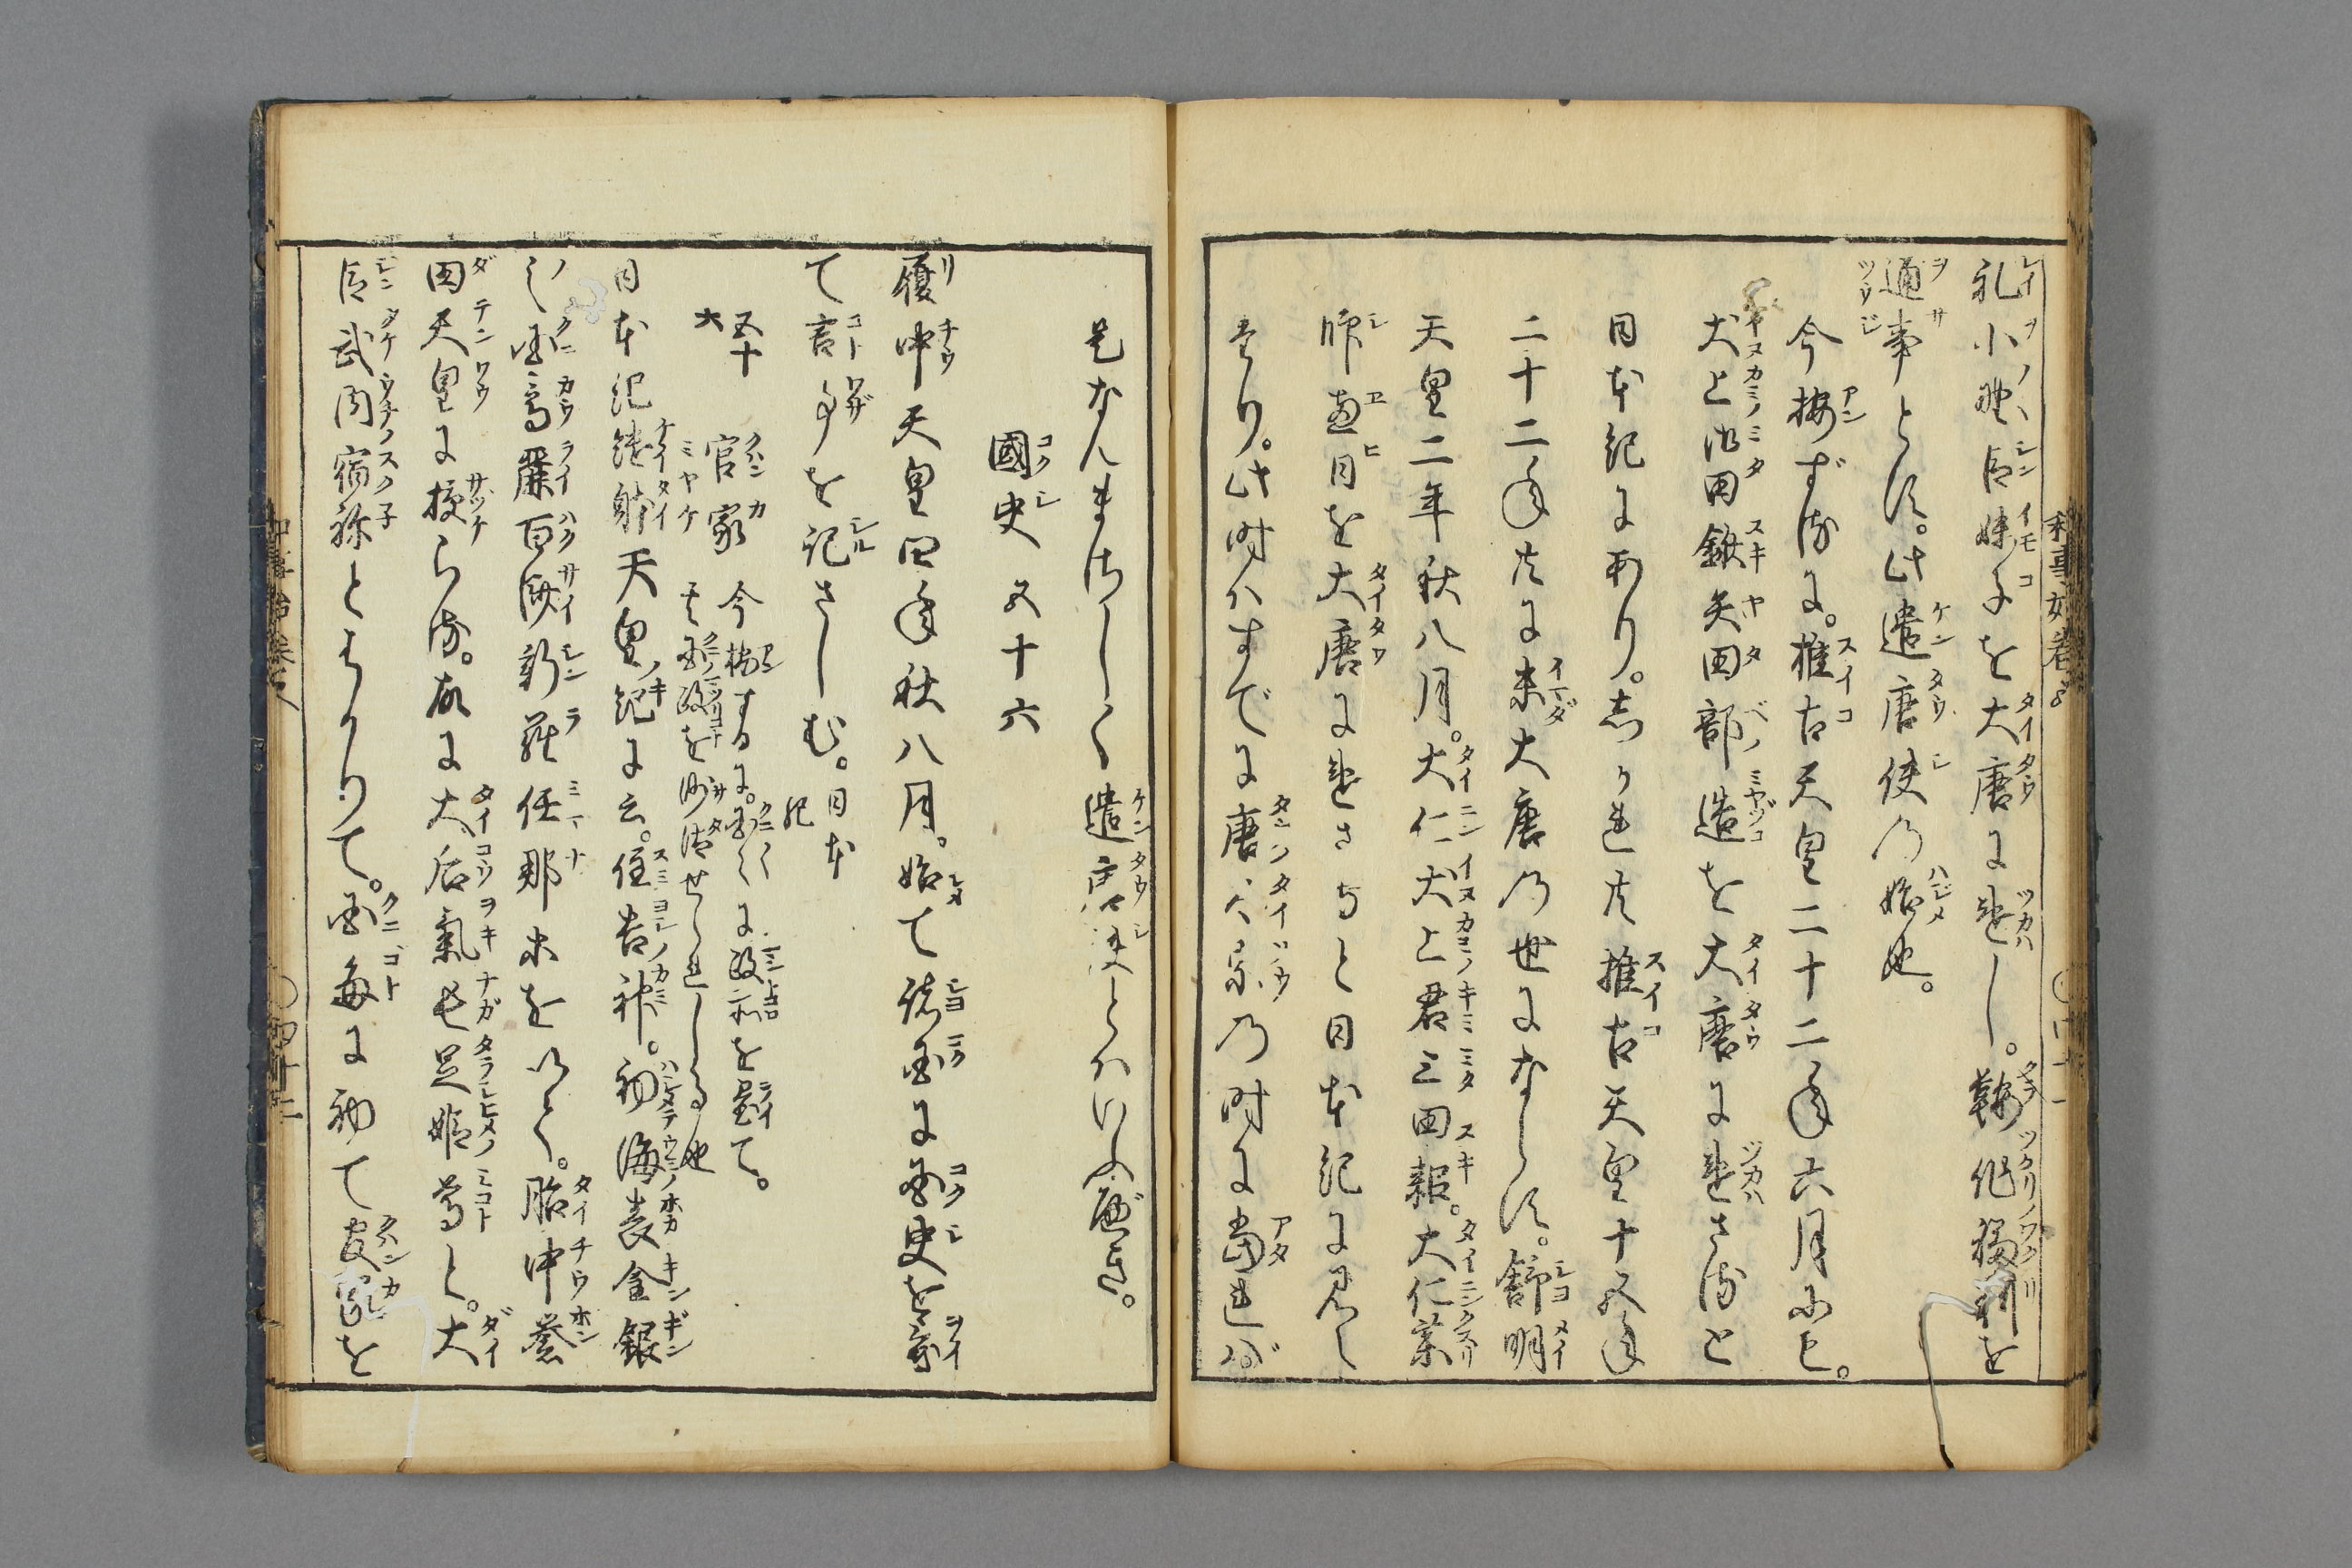 礼小野臣妹子を大唐に遣し。鞍作福利を
通事とす。此遣唐使の始也。
今按ずるに。推古天皇二十二年六月にも。
犬上御田鍬矢田部造を大唐に遣さると
日本紀にあり。しかれ共推古天皇十五年
二十二年共に未大唐の世にならす。舒明
天皇二年秋八月。大仁犬上君三田耜。大仁薬
師恵日を大唐に遣さると日本紀に見え
たり。此時ハすでに唐太宗の時に當れば
是なんまさしく遣唐使とハいふべき。
國史 五十六
履中天皇四年秋八月。始て諸国に国史を置
て言事を記さしむ。日本紀
五十六 官家 今按するに。国〻に政所を置て。其国政を沙汰せられしる也
日本紀継体天皇紀に云。住吉神。初海表金銀
之国高麗百済新羅任那等を以て。胎中誉
田天皇に授らる。故に大后氣長足姫尊と。大
臣武内宿祢とはかりて。国毎に初て官家を
和事始巻之八
〇四十二